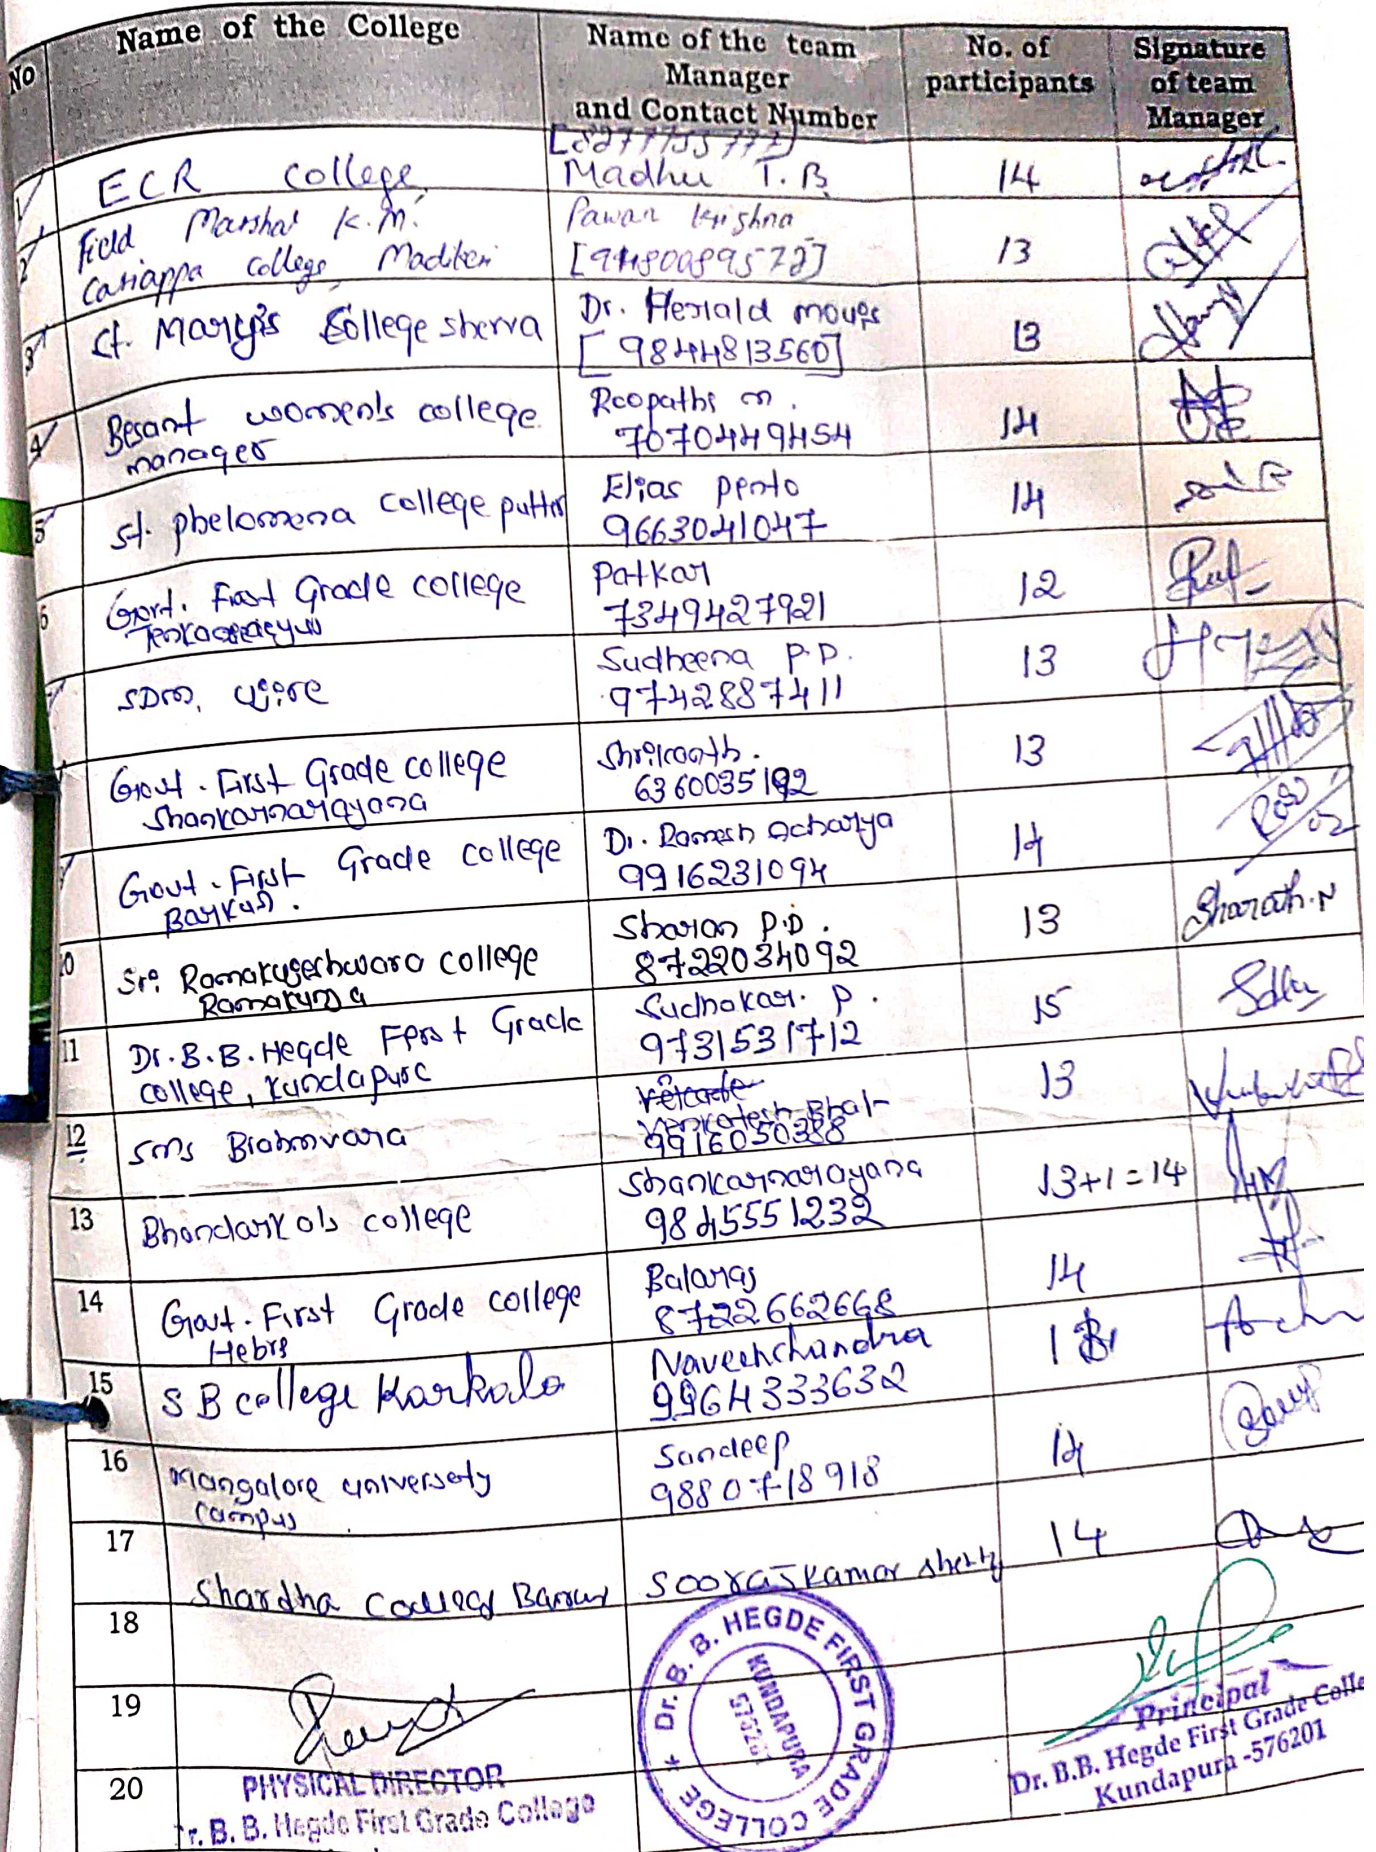 No
Name of the College
Name of the team
Manager
and Contact Number
No. of
participants
Signature
of team
Manager
1
ECR College,
[8277755777]
Madhu T. B
14
2
Field Marshal K.M.
Cariappa College, Madikeri
Pawan Krishna
[9480089572]
13
3
St. Mary's College sherva
Dr. Herald
[9844813560]
13
4
Besant women's college
manager
Roopaths m.
7070449454
14
5
St. phelomena college putter
Elias pento
9663041047
14
6
Govt. First Grade college
Patkar
7349427921
12
SDM,
Sudheena P.D.
9742887411
13
Govt. First Grade college
Shankarnarayana
Shrikanth.
6360035192
13
Govt. First Grade college
Barkur.
Dr. Ramesh Acharya
9916231094
14
Sri Ramakujeshwara college
Ramakunja
Sharan P.D.
8722034092
13
Sharath.N
11
Dr. B.B. Hegde First Grade
college, Kundapura
Sudhakar. P.
9731531712
15
12
SMS Brahmvara
Venkatesh Bhat
9916050388
13
13
Bhandarkars college
Shankarnarayana
9845551232
13+1=14
14
Govt. First Grade college
Hebri
Balaraj
8722662668
14
15
S B college Karkala
Naveenchandra
9964333632
16
Mangalore university
campus
Sandeep
9880718918
14
17
Shardha College Basrur
Soorajkamar shetty
14
18
19
20
PHYSICAL DIRECTOR
Dr. B. B. Hegde First Grade College
★ Dr. B. B. HEGDE FIRST GRADE COLLEGE
KUNDAPURA
576201
Principal
Dr. B.B. Hegde First Grade Colle
Kundapura -576201